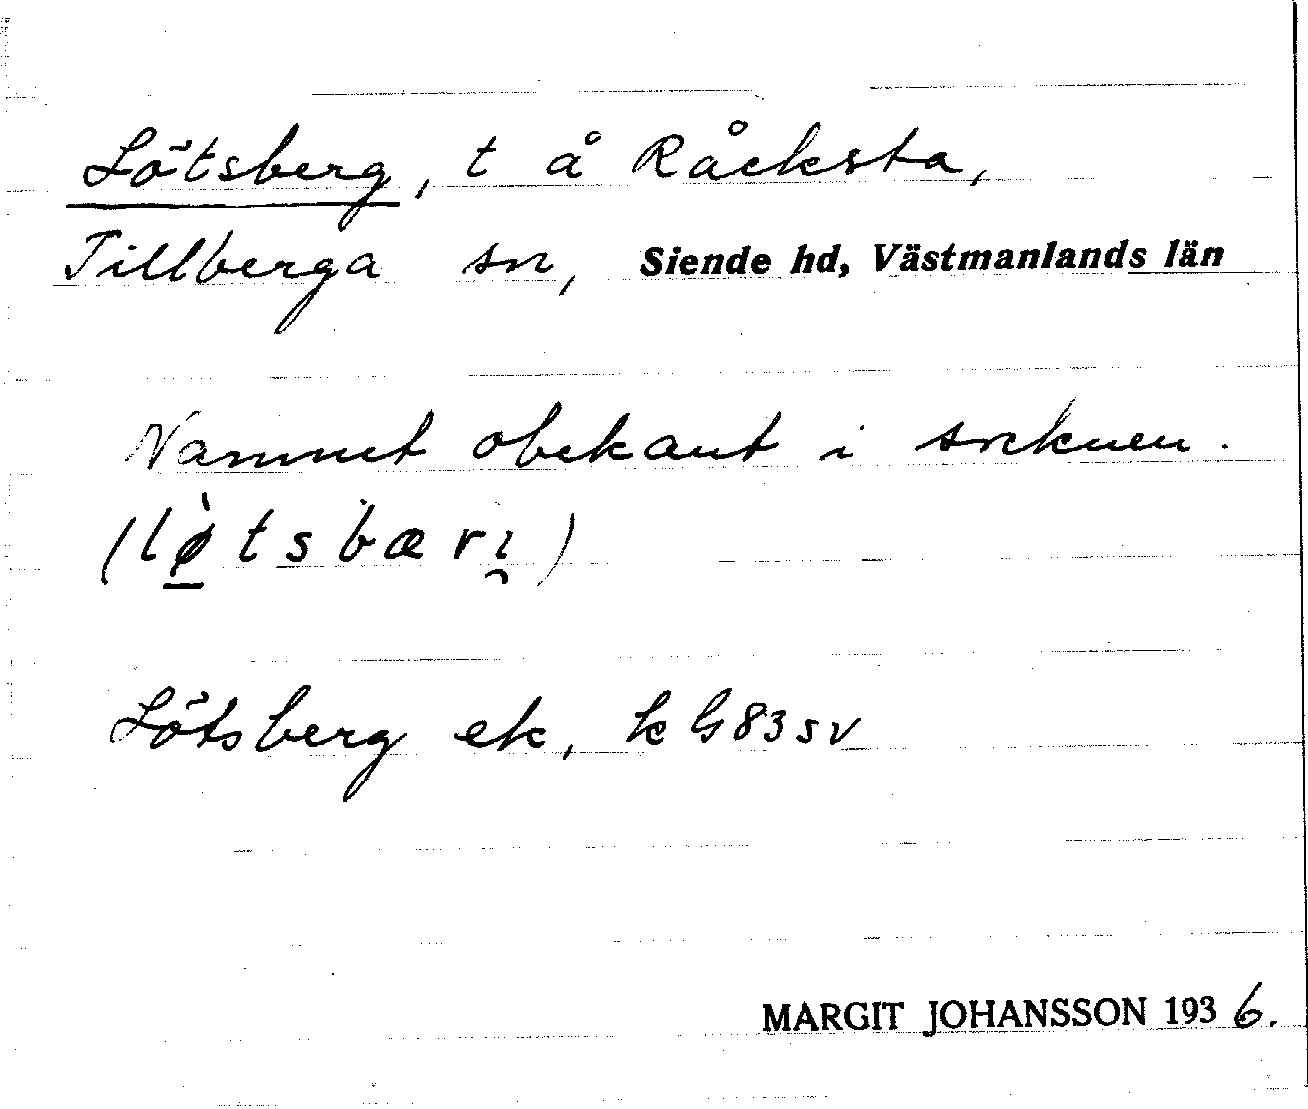 Lötsberg, t å Råcksta,
Tillberga sn, Siende hd, Västmanlands län
Namnet obekant i socknen.
(lø̀tsbærɩ̯)
Lötsberg ek, k G83sv
MARGIT JOHANSSON 1936.